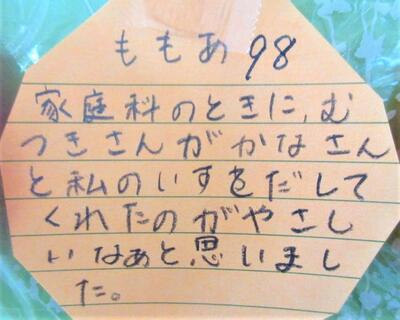 ももあ 98
家庭科のときに、む
つきさんがかなさん
と私のいすをだして
くれたのがやさし
いなぁと思いまし
た。